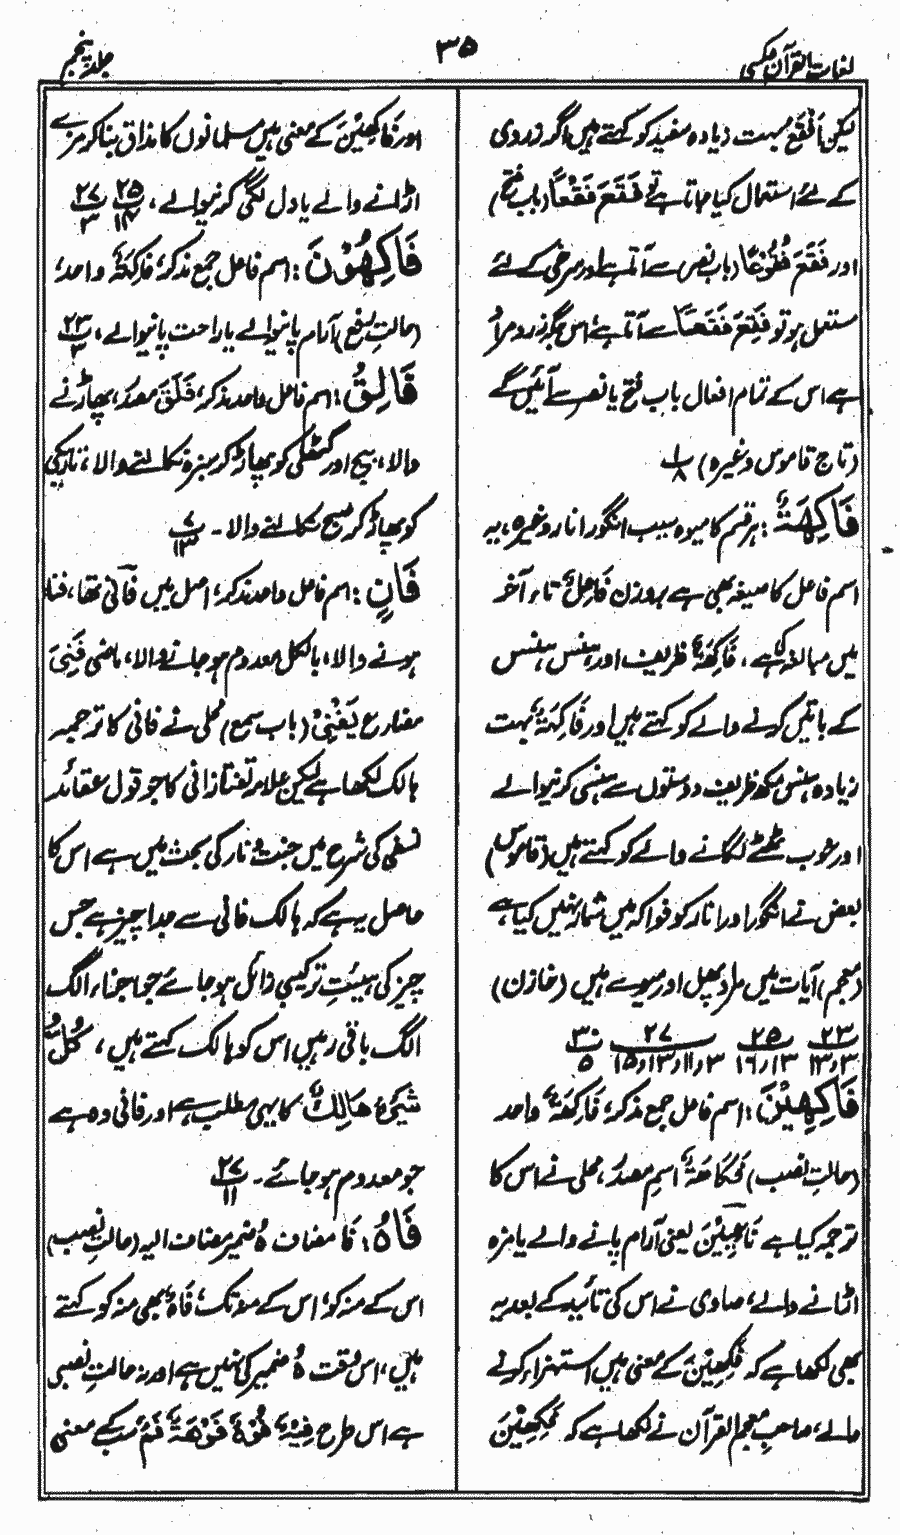 لغات القرآن عکسی
۳۵
جلد پنجم
لیکن اَفْقَعُ بہت زیادہ سفید کو کہتے ہیں اگر زردی
کے لئے استعمال کیا جاتا ہے تو فَقَعَ فَقْعًا (باب فتح)
اور فَقَعَ فُقُوْعًا (باب نصر) سے آتا ہے اور سرخی کے لئے
مستعمل ہو تو فَقِعَ فَقَعًا سے آتا ہے، اس جگہ زرد مراد
ہے اس کے تمام افعال باب فتح یا نصر سے آئیں گے
(تاج قاموس وغیرہ) ۱/۸
فَاكِهَةٌ: ہر قسم کا میوہ سیب انگور انار وغیرہ، یہ
اسم فاعل کا صیغہ بھی ہے بروزن فَاعِلٌ تاء آخر
میں مبالغہ کی ہے، فَاكِهَةٌ ظریف اور ہنس ہنس
کے باتیں کرنے والے کو کہتے ہیں اور فَاكِهَةٌ بہت
زیادہ ہنس مکھ ظریف دوستوں سے ہنسی کرنیوالے
اور خوب ٹھٹھے لگانے والے کو کہتے ہیں (قاموس)
بعض نے انگور اور انار کو فواکہ میں شمار نہیں کیا ہے
(معجم) آیات میں مراد پھل اور میوے ہیں (خازن)
۲۳/۳و۱۳ ۲۵/۱۳و۱۶ ۲۷/۳و۱۱و۱۳و۱۵ ۳۰/۵
فَاكِهِيْنَ: اسم فاعل جمع مذکر، فَاكِهَةٌ واحد
(حالتِ نصب) فُكَاهَةٌ اسمِ مصدر، محلی نے اس کا
ترجمہ کیا ہے نَاعِمِيْنَ یعنی آرام پانے والے یا مزہ
اڑانے والے، صاوی نے اس کی تائید کے بعد یہ
بھی لکھا ہے کہ فَكِهِيْنَ کے معنی ہیں استہزاء کرنے
والے، صاحبِ معجم القرآن نے لکھا ہے کہ فَكِهِيْنَ
اور فَاكِهِيْنَ کے معنی ہیں مسلمانوں کا مذاق بنا کر مزے
اڑانے والے یا دل لگی کرنیوالے، ۲۵/۱۴ ۲۷/۳
فَاكِهُوْنَ: اسم فاعل جمع مذکر، فَاكِهَةٌ واحد،
(حالتِ رفع) آرام پانیوالے یا راحت پانیوالے، ۲۳/۳
فَالِقُ: اسم فاعل واحد مذکر، فَلَقَ مصدر، پھاڑنے
والا، بیج اور گٹھلی کو پھاڑ کر سبزہ نکالنے والا، تاریکی
کو پھاڑ کر صبح نکالنے والا۔ ۷/۱۳
فَانٍ: اسم فاعل واحد مذکر، اصل میں فانی تھا، فنا
ہونے والا، بالکل معدوم ہو جانے والا، ماضی فَنِیَ
مضارع يَفْنٰی (باب سمع) محلی نے فانی کا ترجمہ
ہالک لکھا ہے لیکن علامہ تفتازانی کا جو قول عقائد
نسفی کی شرح میں جنت و نار کی بحث میں ہے اس کا
حاصل یہ ہے کہ ہالک فانی سے جدا چیز ہے جس
چیز کی ہیئتِ ترکیبی زائل ہو جائے جو اجزاء الگ
الگ باقی رہیں اس کو ہالک کہتے ہیں، كُلُّ
شَیْءٍ هَالِكٌ کا یہی مطلب ہے اور فانی وہ ہے
جو معدوم ہو جائے۔ ۲۷/۱۱
فَاهُ: فَا مضاف هُ ضمیر مضاف الیہ (حالتِ نصب)
اس کے منہ کو، اس کے منہ تک، فَاهٌ بھی منہ کو کہتے
ہیں، اس وقت هُ ضمیر کی نہیں ہے اور نہ حالتِ نصبی
ہے اس طرح فِيْهٌ فُوْهٌ فَوْهَةٌ فَمٌ سب کے معنی